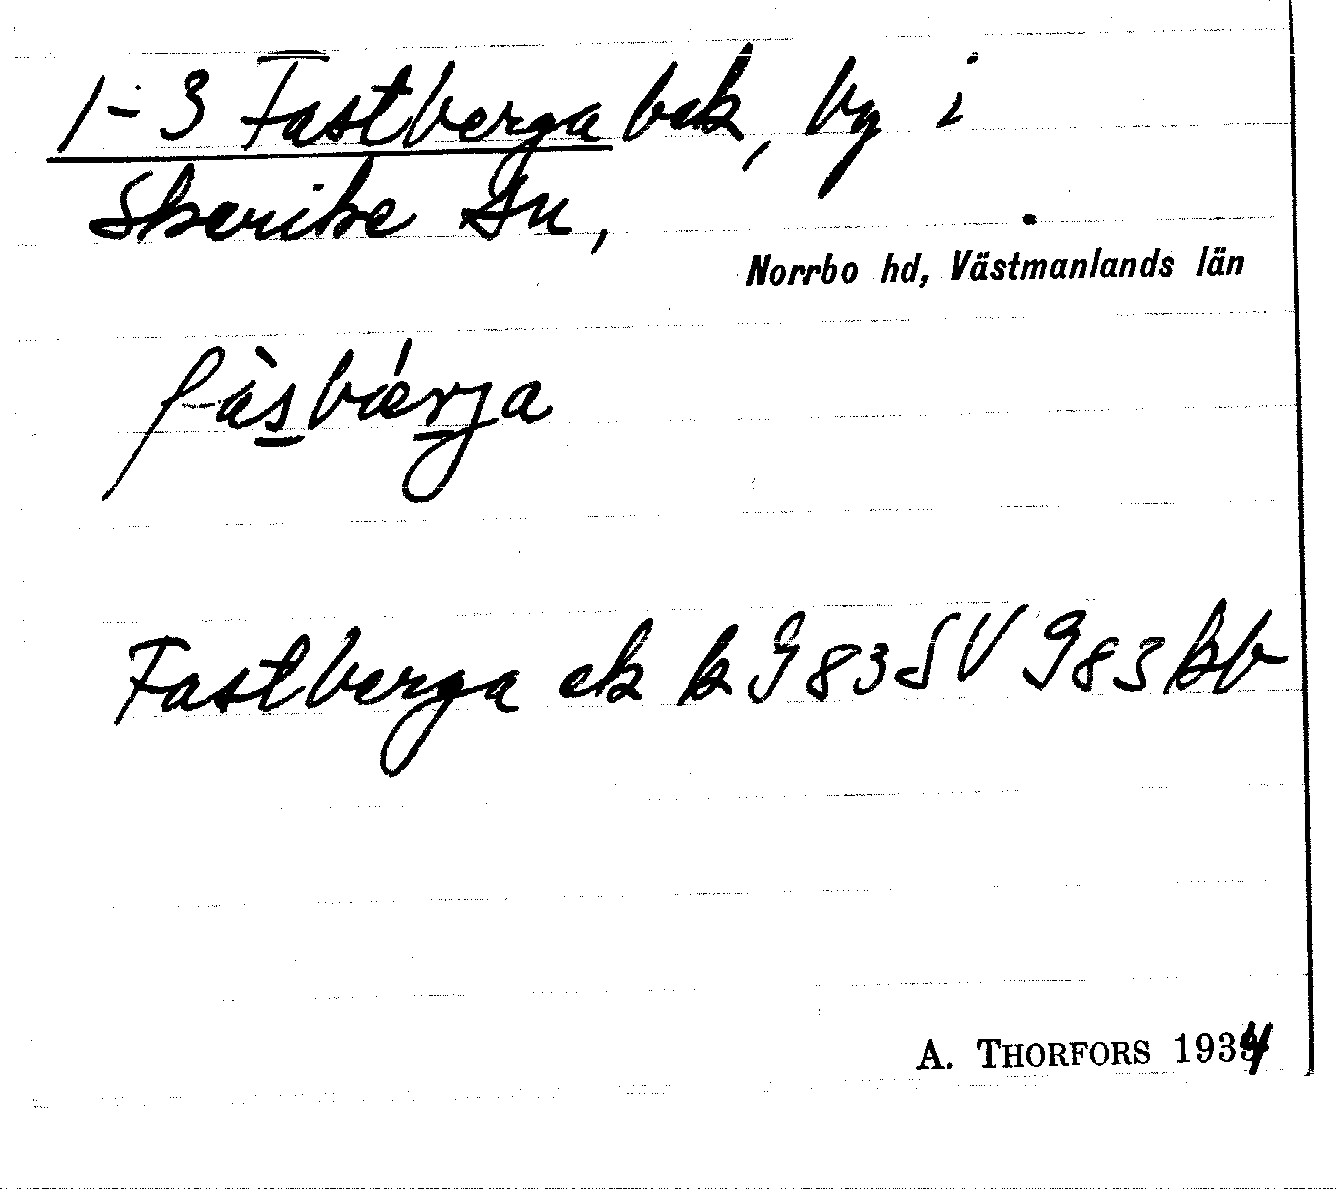 1-3 Fastberga bek, by i
Skerike sn,
Norrbo hd, Västmanlands län
fàsbǽrja
Fastberga ek k J 83 SV J 83 kb
A. THORFORS 1934